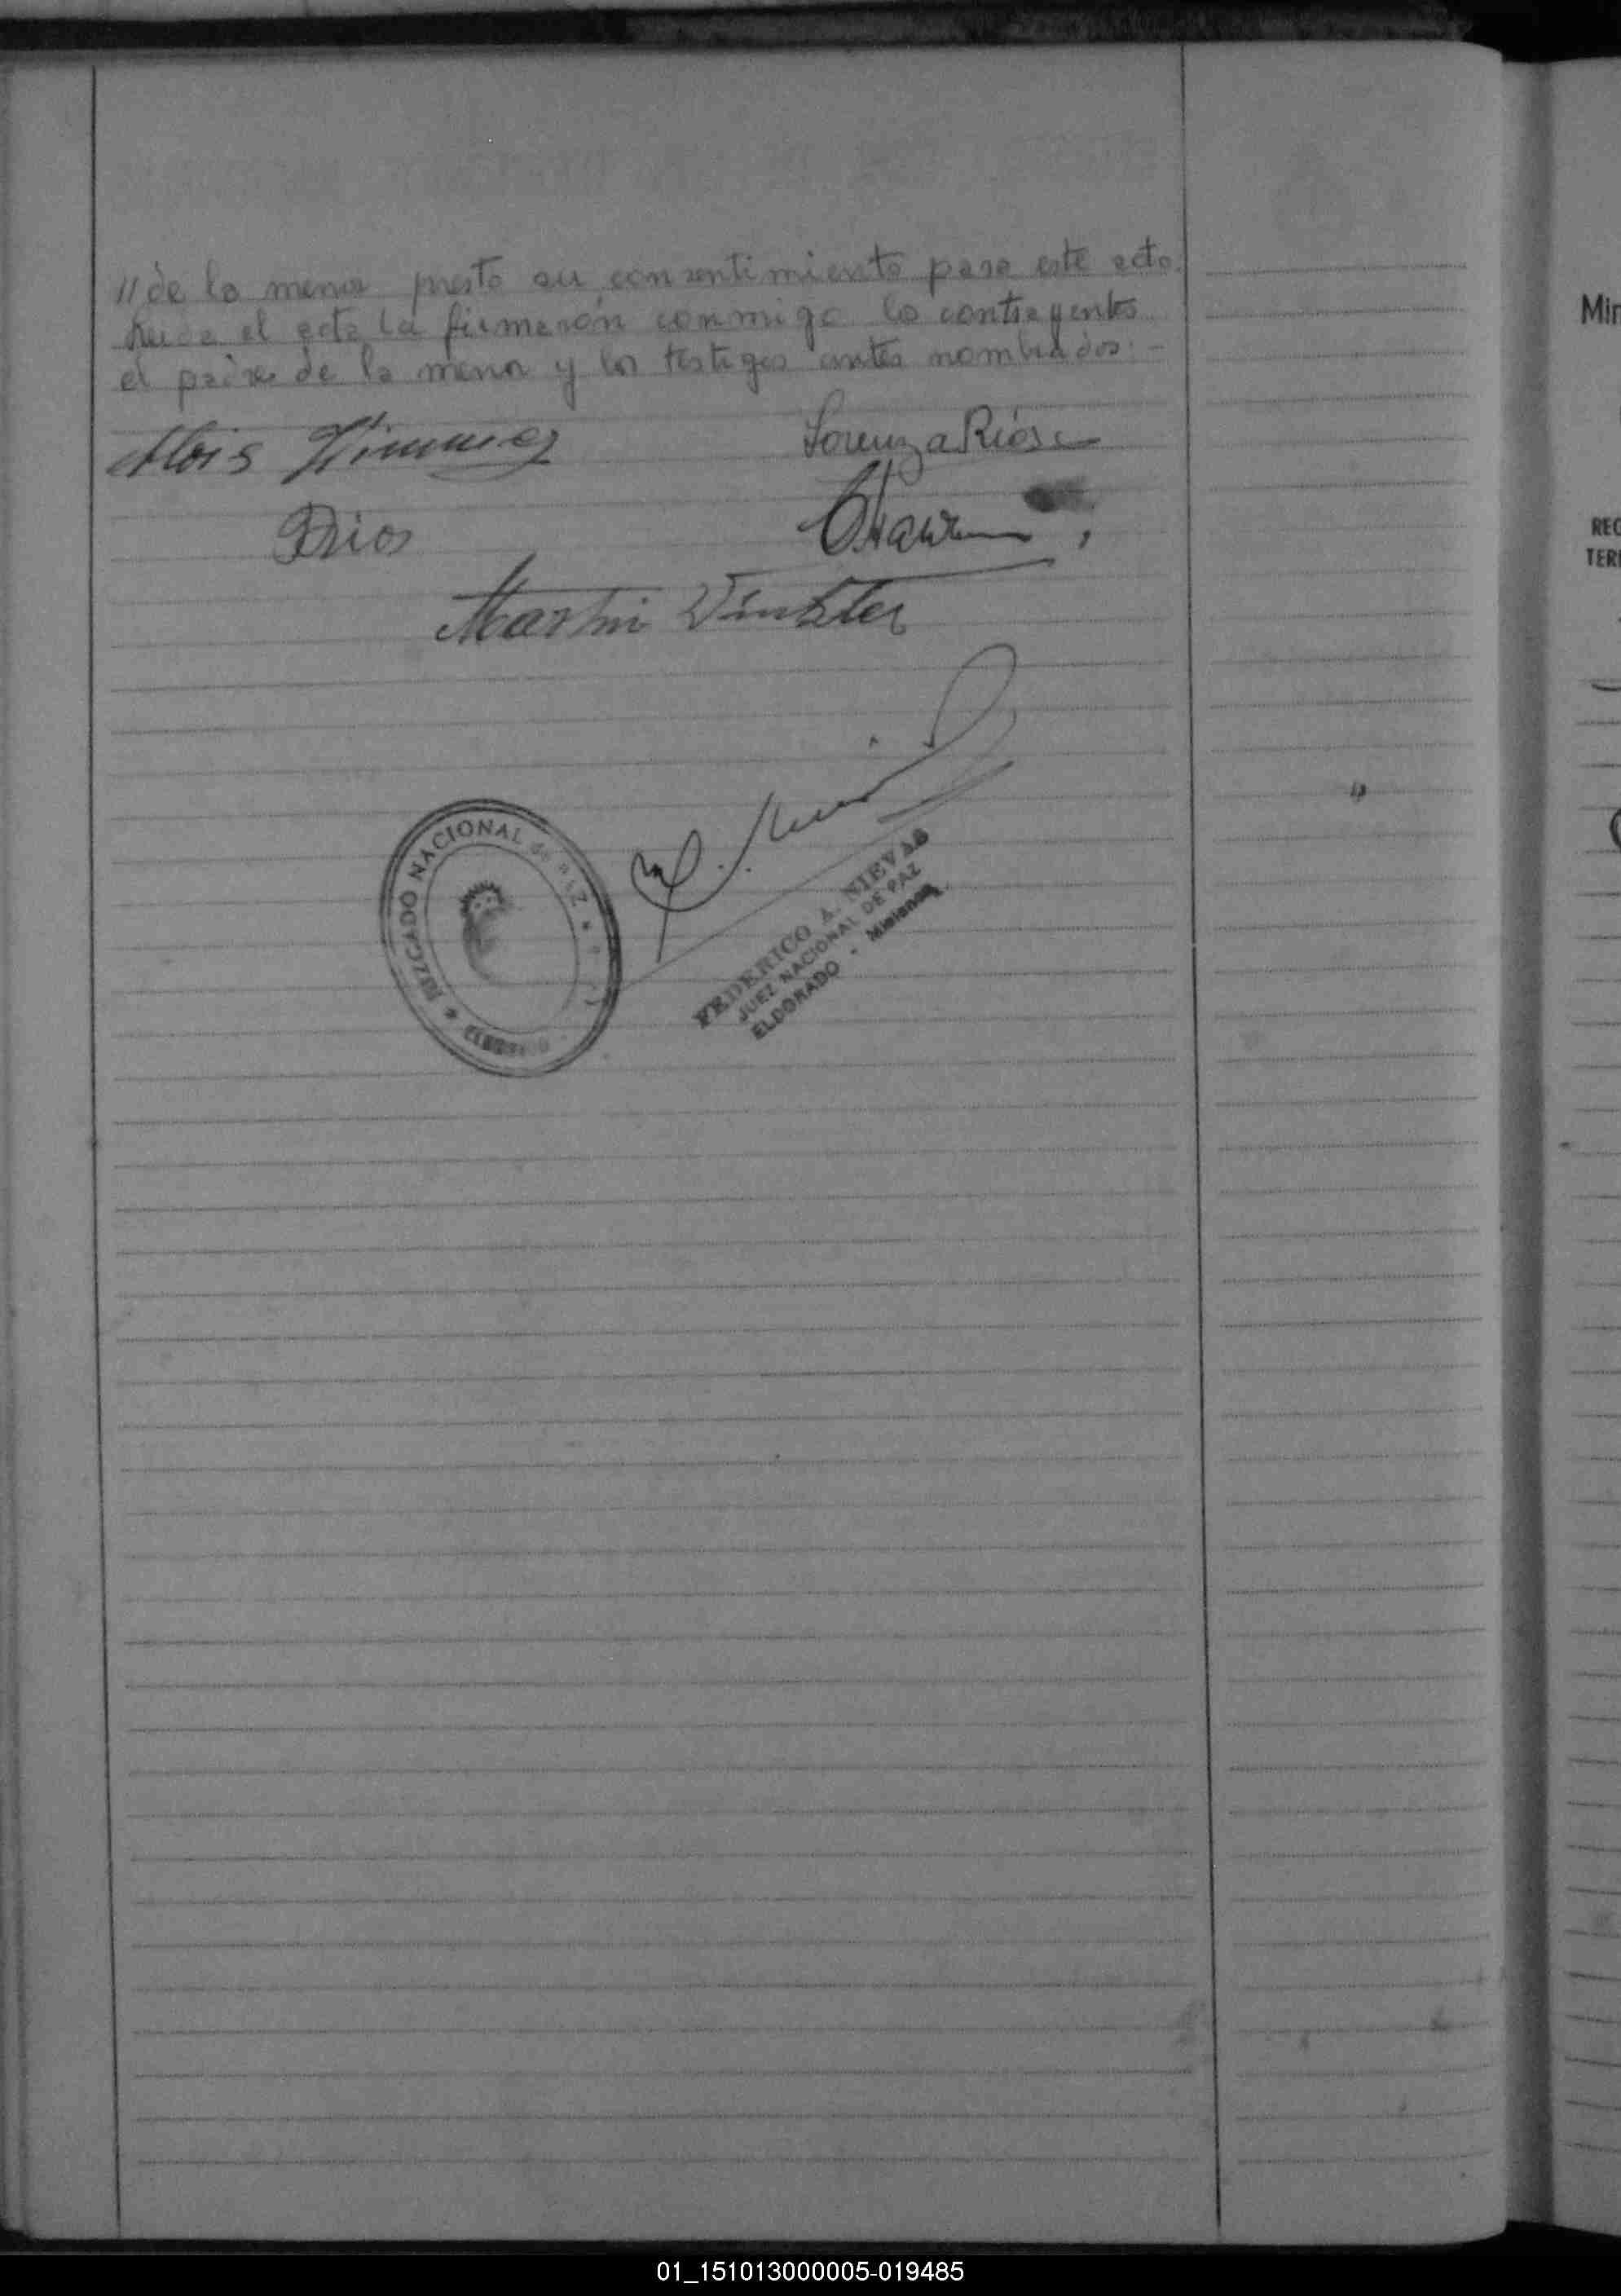 // de la menor presto su consentimiento para este acto.
Leida el acta la firmaron conmigo los contrayentes
el padre de la menor y los testigos antes nombrados: -
Alois Lorenza Rios
Rios
Martin Winkler
JUZGADO NACIONAL de PAZ
FEDERICO A. NIEVAS
JUEZ NACIONAL DE PAZ
ELDORADO - Misiones
Min
REG
TERR
01_151013000005-019485